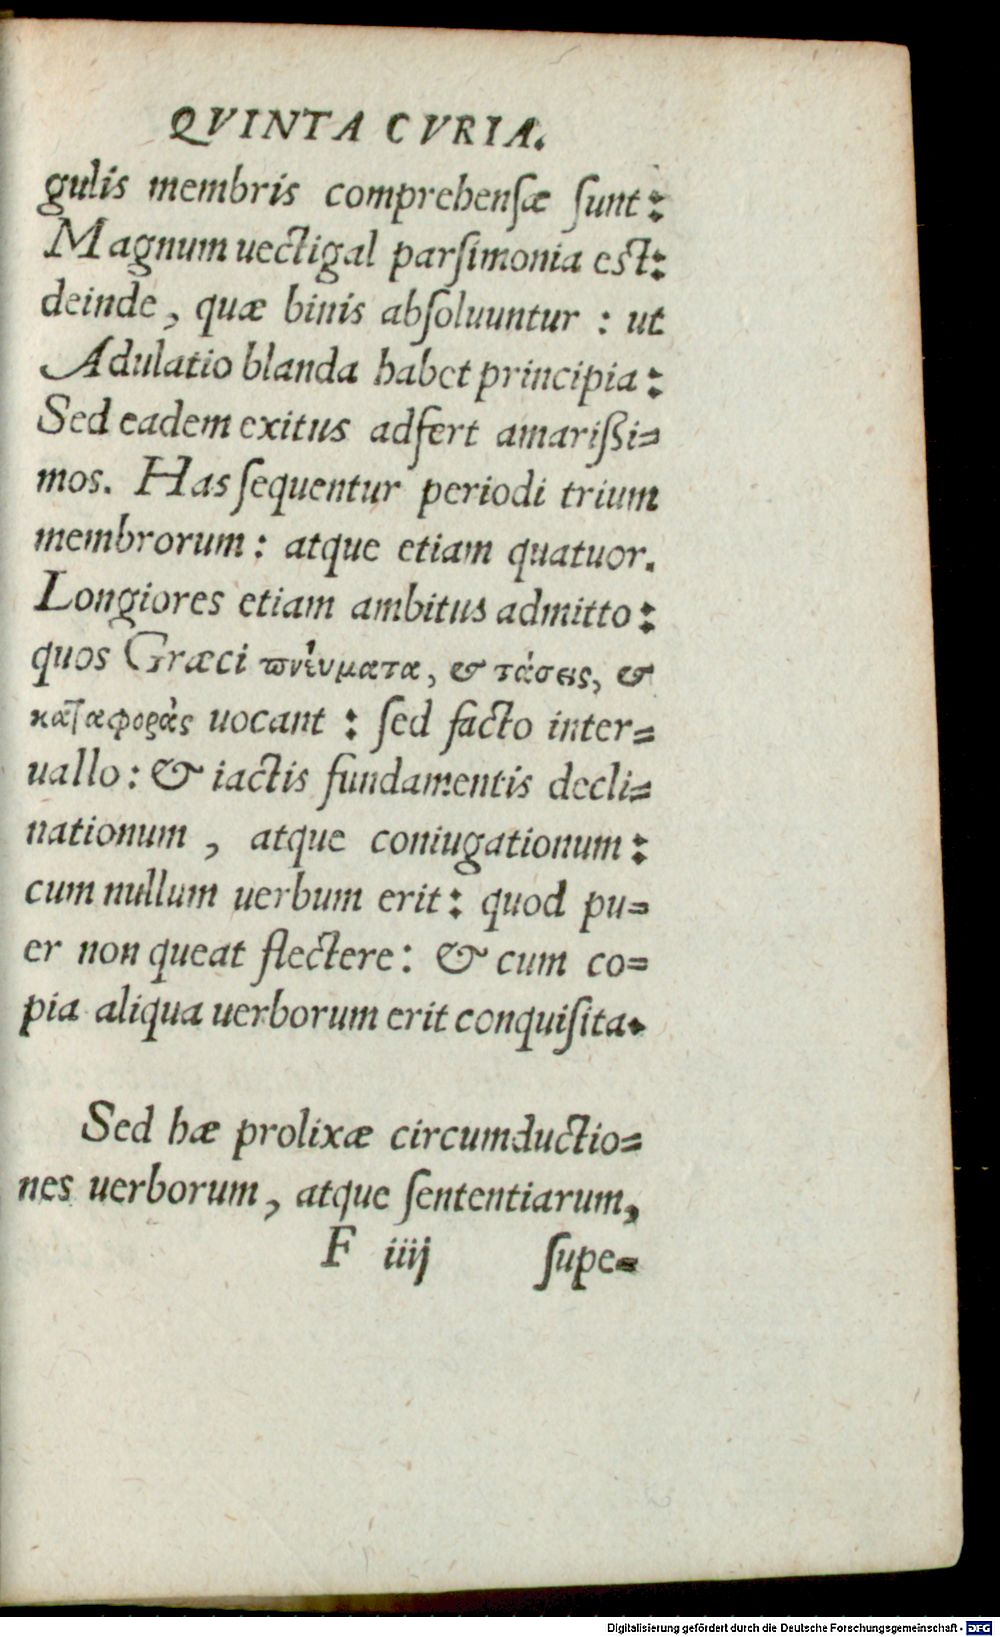 QVINTA CVRIA.
gulis membris comprehensæ sunt:
Magnum uectigal parsimonia est:
deinde, quæ binis absoluuntur : ut
Adulatio blanda habet principia:
Sed eadem exitus adfert amarißi=
mos. Has sequentur periodi trium
membrorum: atque etiam quatuor.
Longiores etiam ambitus admitto:
quos Græci πνεύματα, & τάσεις, &
καταφορὰς uocant : sed facto inter=
uallo: & iactis fundamentis decli=
nationum, atque coniugationum:
cum nullum uerbum erit: quod pu=
er non queat flectere: & cum co=
pia aliqua uerborum erit conquisita.
Sed hæ prolixæ circumductio=
nes uerborum, atque sententiarum,
F iiij supe=
Digitalisierung gefördert durch die Deutsche Forschungsgemeinschaft - DFG